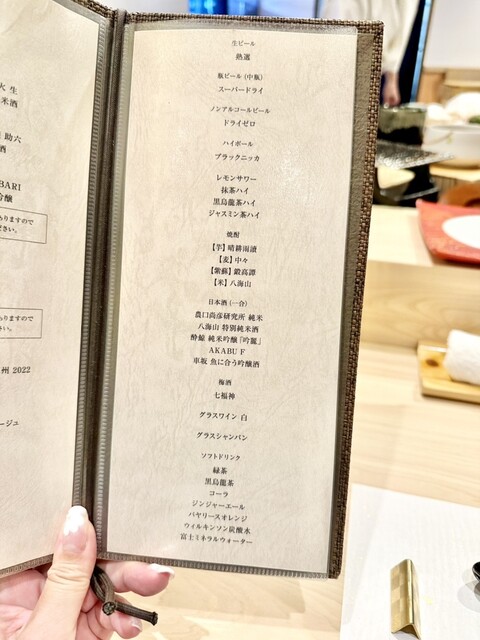 火 生
米酒
助六
酒
BARI
吟醸
ありますので
ださい。
ありますので
さい。
州 2022
ージュ
生ビール
熟選
瓶ビール (中瓶)
スーパードライ
ノンアルコールビール
ドライゼロ
ハイボール
ブラックニッカ
レモンサワー
抹茶ハイ
黒烏龍茶ハイ
ジャスミン茶ハイ
焼酎
【芋】晴耕雨讀
【麦】中々
【紫蘇】鍛高譚
【米】八海山
日本酒 (一合)
農口尚彦研究所 純米
八海山 特別純米酒
酔鯨 純米吟醸「吟麗」
AKABU F
車坂 魚に合う吟醸酒
梅酒
七福神
グラスワイン 白
グラスシャンパン
ソフトドリンク
緑茶
黒烏龍茶
コーラ
ジンジャーエール
バヤリースオレンジ
ウィルキンソン炭酸水
富士ミネラルウォーター